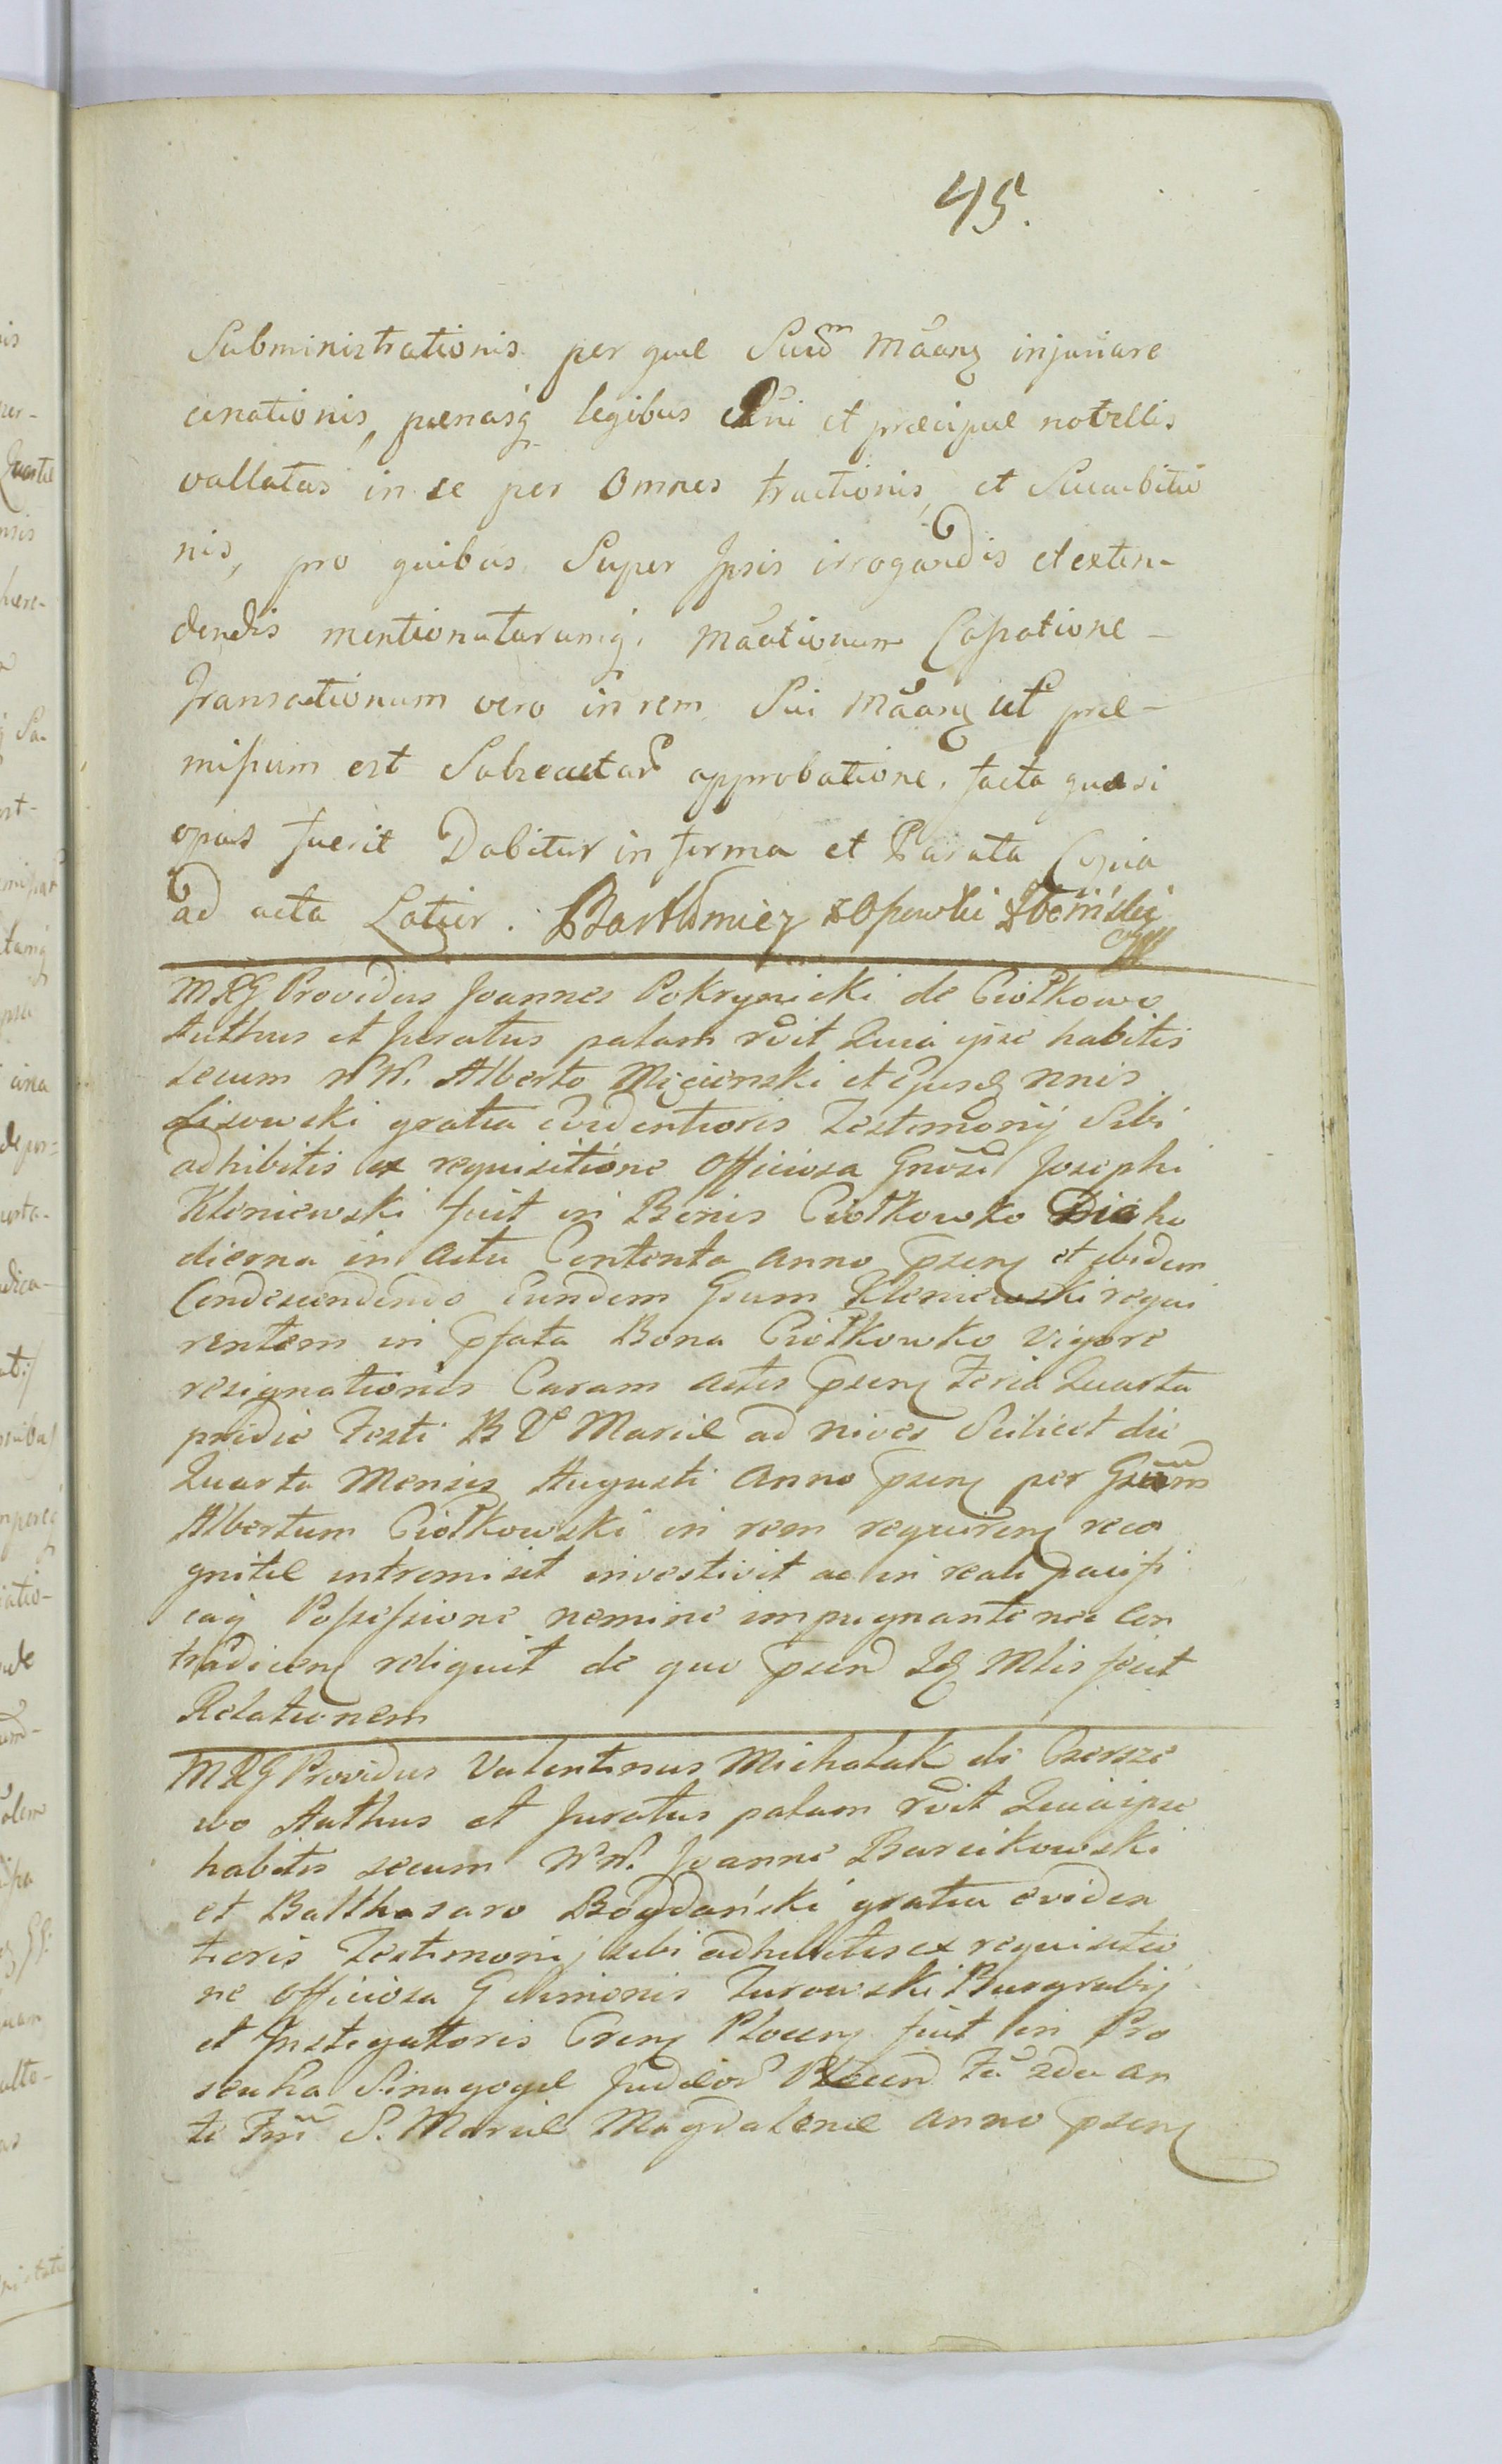 45.
Subministrationis per quæ Suam Mãang injuriare
cenationis, pænasq legibus et præcipue novellis
vallatas in se per Omnes tractionis, et Sucubitio
nis, pro quibus Super Ipsis irrogandis et exten-
dendis mentionatarumq. Mãationum Caßatione -
Transactionum vero in rem Sui Mãang ut præ-
mißum est Subsecutar approbatione, facta quasi
opus fuerit Dabitur in forma et Parata Copia
ad acta Latior. Bartłomiey
MRG Providus Joannes Pokrynicki de Ciołkowo
Authus et Juratus palam rñit Quia ipse habitis
secum NN. Alberto Micienski et Ejusd NNis
Lisowski gratia Evidentioris Testimonij Sibi
adhibitis ex requisitione Officiosa Gnosi Josephi
Kloniewski fuit in Bonis Ciołkowko Die ho
dierna in Actu Contenta Anno psen et ibidem
Condescendendo Eundem Gsum Kloniewski requi
rentem in pfata Bona Ciołkowko Vigore
resignationis Coram Actis psen Feria Quarta
pridie Festi B V Mariæ ad nives Scilicet die
Quarta Mensis Augusti Anno psen per Gsum
Albertum Ciołkowski in rem requiren reco
gnitæ intromisit investivit ac in reali pacifi
caq Poßeßione nemine impugnante nec Con
tradicen reliquit de quo psen Lq Mlis fecit
Relationem
MRG Providus Valentinus Michalak de Czersze
wo Authus et Juratus palam rñit Quia ipse
habitis secum NN. Joanne Barcikowski
et Balthasaro Bogdański gratia eviden
tioris Testimonij sibi adhibitis ex requisitio
ne Officiosa G Simonis Turowski Burgrabij
et Instigattoris Cren Plocen fuit in Pro
scuha Sinagogæ Judæor Plocen Fa 2da an
te Fm S. Mariæ Magdalenæ Anno psen